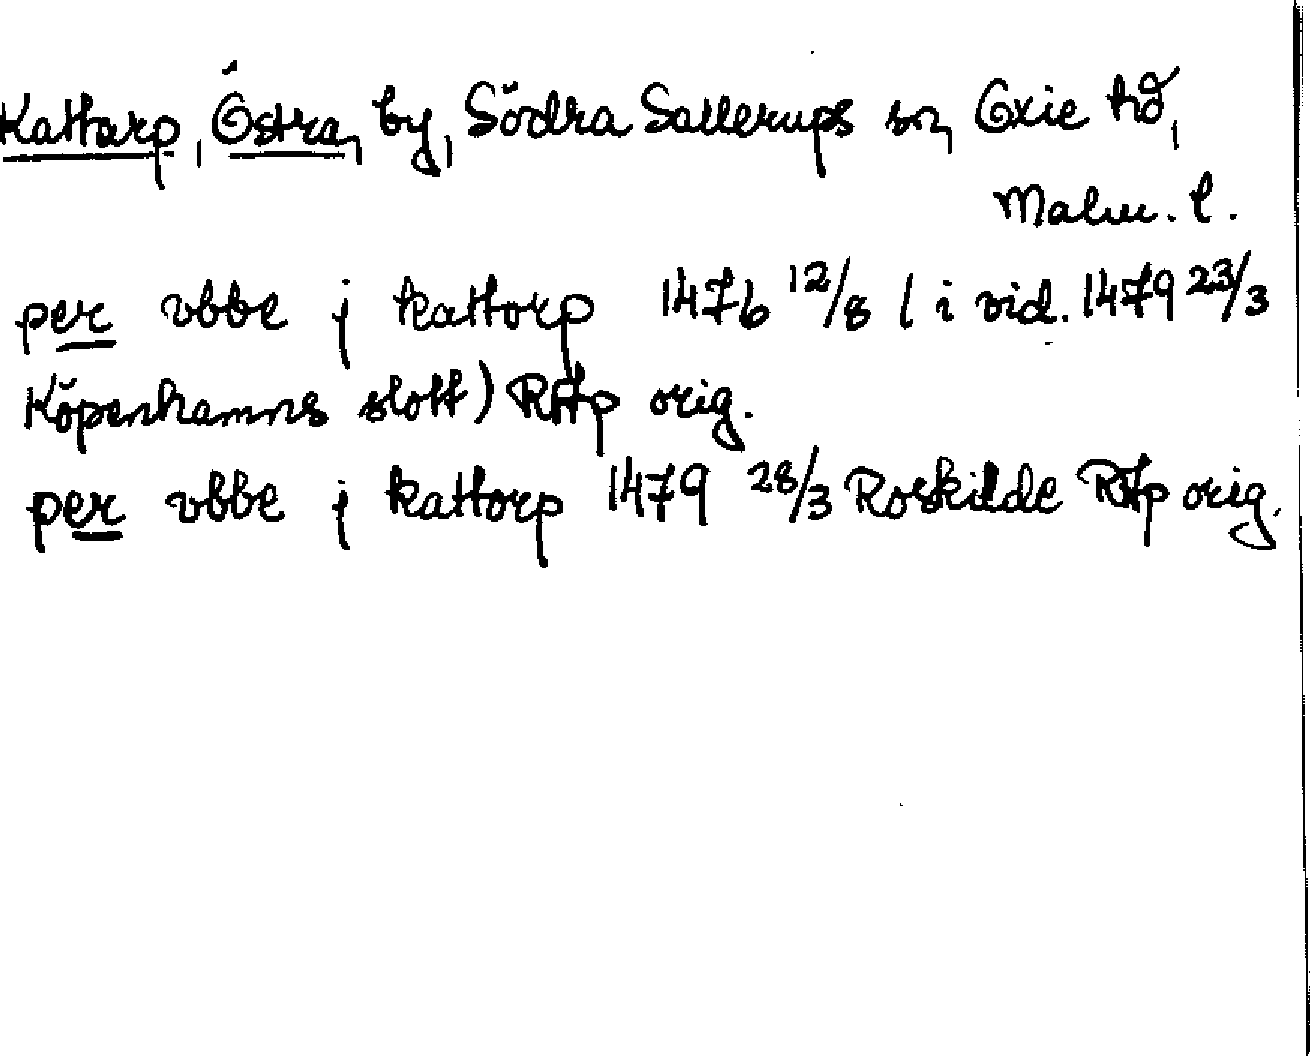 Kattarp, Östra, by, Södra Sallerups sn, Oxie hd,
Malm. l.
per vbbe j kattorp 1476 12/8 ( i vid. 1479 23/3
Köpenhamns slott) RAp orig.
per vbbe j kattorp 1479 28/3 Roskilde RAp orig.